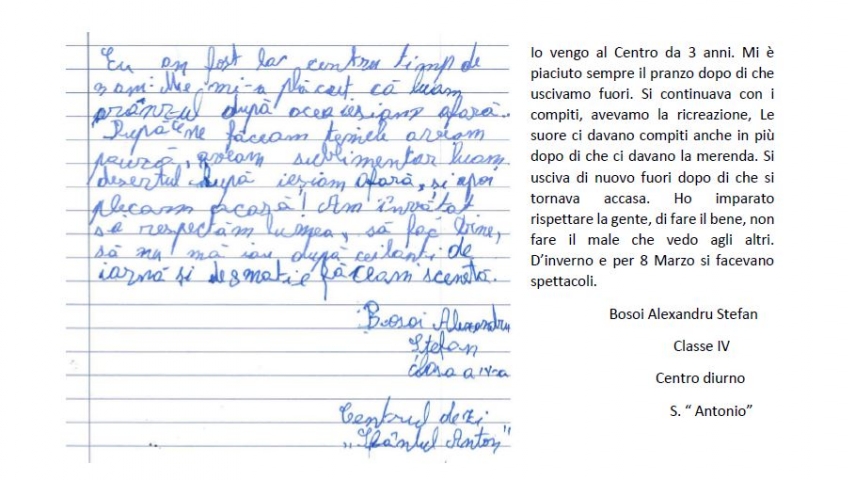 Eu am fost la centru timp de
3 ani. Me, mi-a plăcut că luam
prânzul după aceea ieșiam afară.
După ne făceam temele aveam
pauză, aveam sublimentar luam
desertul după ieșiam afară, și apoi
plecam acasă! Am învătat
să respectăm lumea, să fac bine,
să nu mă iau după ceilanti de
iarnă si de făceam scenetă.
Bosoi Alexandru
Ștefan
clasa a IV-a
Centrul de zi
„Sfântul Anton”
Io vengo al Centro da 3 anni. Mi è
piaciuto sempre il pranzo dopo di che
uscivamo fuori. Si continuava con i
compiti, avevamo la ricreazione, Le
suore ci davano compiti anche in più
dopo di che ci davano la merenda. Si
usciva di nuovo fuori dopo di che si
tornava accasa. Ho imparato
rispettare la gente, di fare il bene, non
fare il male che vedo agli altri.
D’inverno e per 8 Marzo si facevano
spettacoli.
Bosoi Alexandru Stefan
Classe IV
Centro diurno
S. “ Antonio”